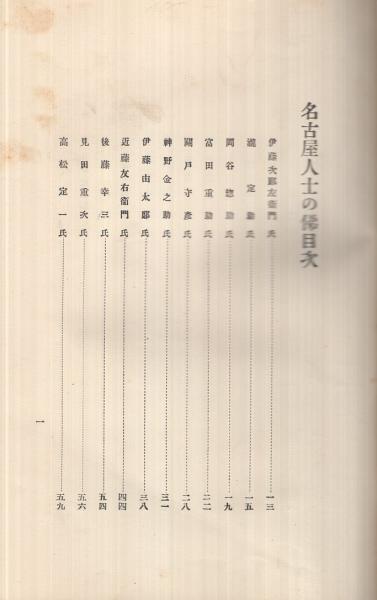 名古屋人士の俤目次
伊藤次郎左衞門氏……一三
瀧定助氏……一五
岡谷惣助氏……一九
富田重助氏……二二
關戸守彥氏……二八
神野金之助氏……三一
伊藤由太郎氏……三八
近藤友右衞門氏……四四
後藤幸三氏……五四
見田重次氏……五六
高松定一氏……五九
一